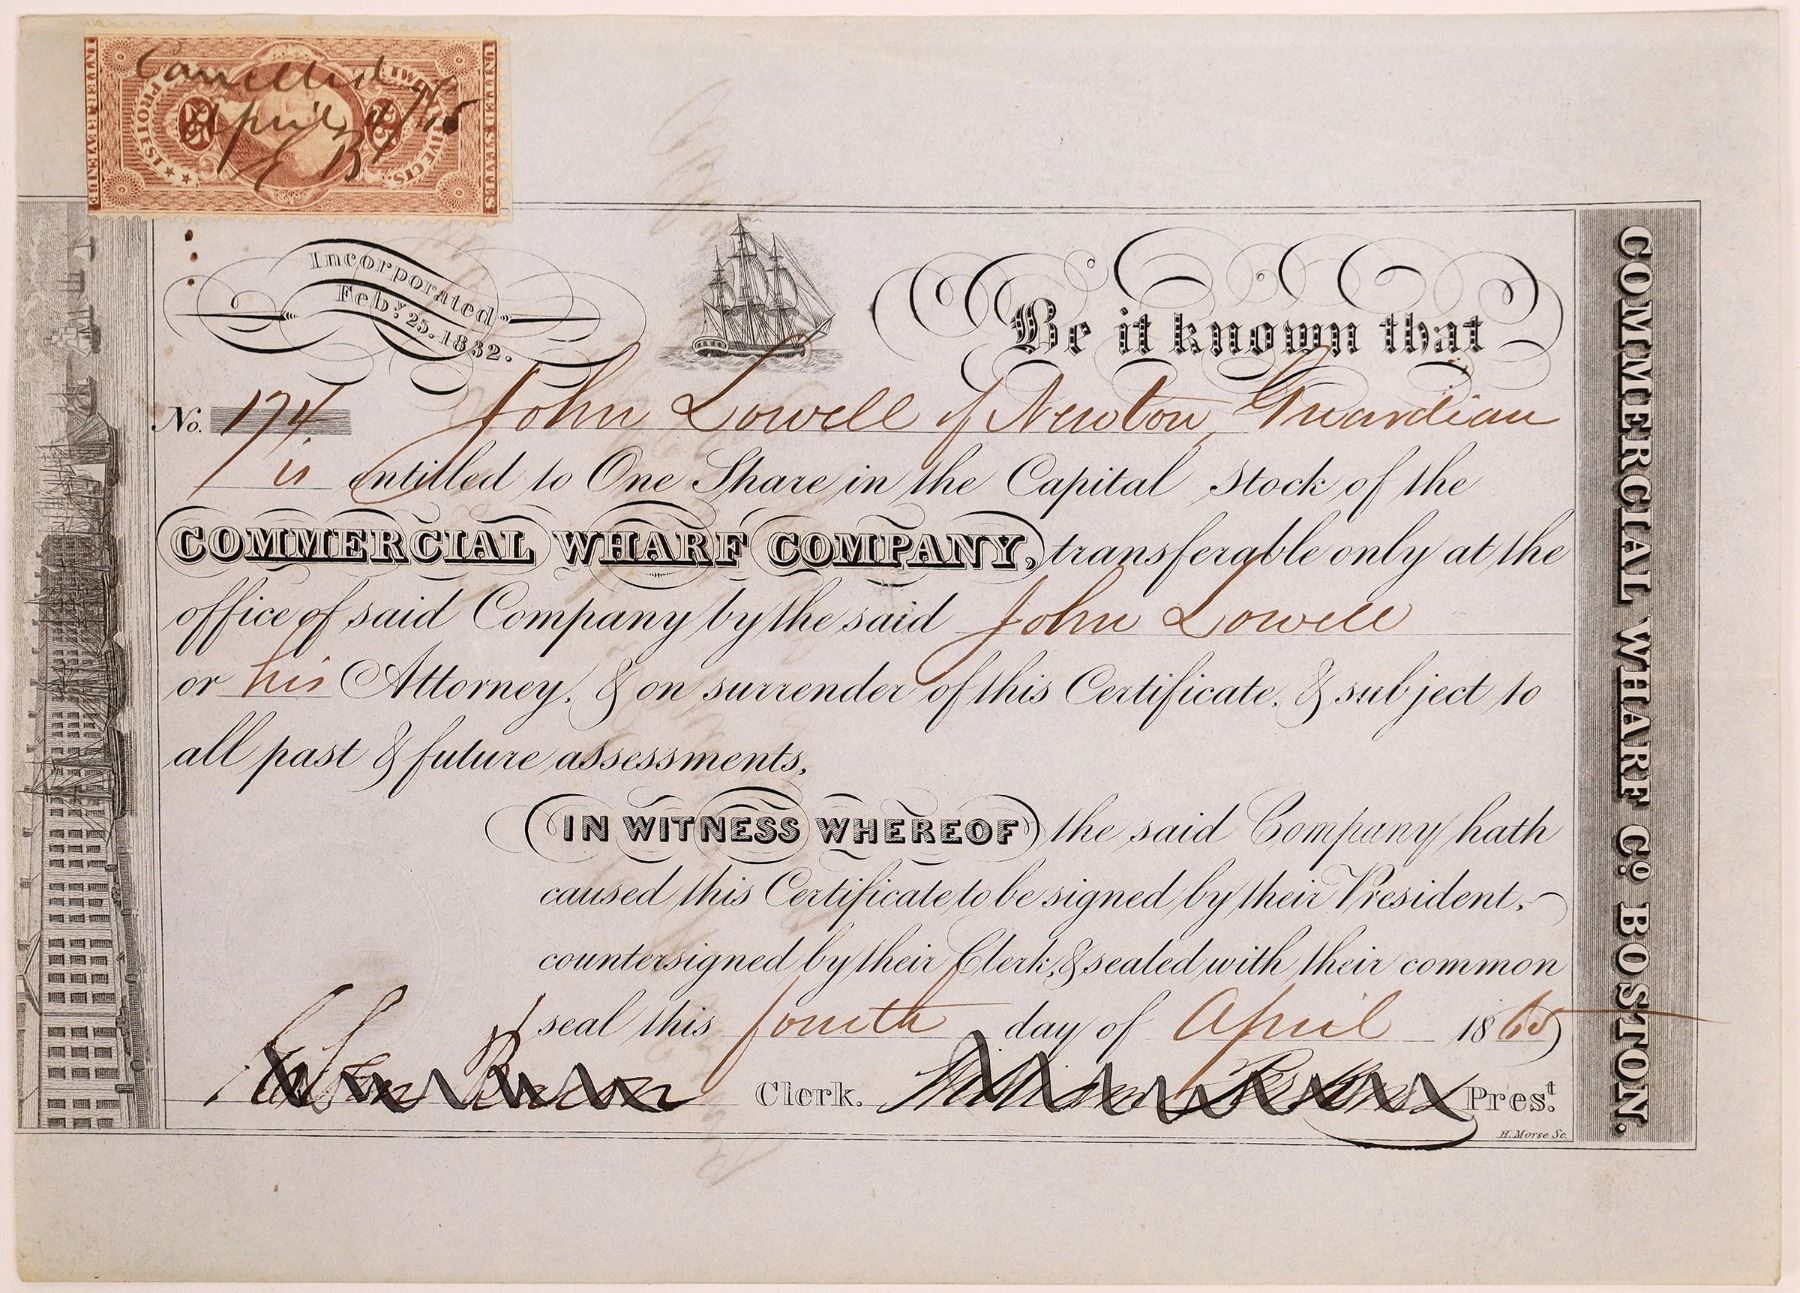 UNITED STATES
INTER. REVENUE
TWENTY FIVE CTS.
PROTEST
25 25
Cancelled
April 4/65
Incorporated
Feby. 25. 1832.
Be it known that
No. 174. John Lowell of Newton, Guardian
is entitled to One Share in the Capital Stock of the
COMMERCIAL WHARF COMPANY, transferable only at the
office of said Company by the said John Lowell
or his Attorney, & on surrender of this Certificate, & subject to
all past & future assessments.
IN WITNESS WHEREOF the said Company hath
caused this Certificate to be signed by their President,
countersigned by their Clerk, & sealed with their common
seal this fourth day of April 1865
Clerk. William Prest.
H. Morse Sc.
COMMERCIAL WHARF Co. BOSTON.